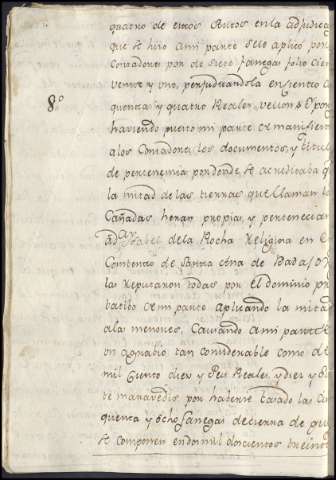 quatro de estos Autos en la adjudica
que se hizo a mi parte se le aplicó por
Contadores por de siete fanegas solo cien
veinte y uno, perjudicandola en ciento ci
quenta y quatro Reales, vellon
8.º
haviendo puesto mi parte de manifiesto
a los Contadores los documentos, y titul
de pertenencia por donde se acreditaba q
la mitad de las tierras que llaman
Cañadas heran propias y pertenecie
a D.ª Isabel de la Rocha Religiosa en el
Combento de Santa Ana de Badajoz
la reputaron todas por el dominio
de mi parte aplicando la mita
a la menores, Causando a mi parte
un agravio tan considerable como de
mil ciento diez y seis Reales, y diez y
te maravedis por haberse tasado las cin
quenta y ocho fanegas de tierra de que
se componen en dos mil doscientos treinta